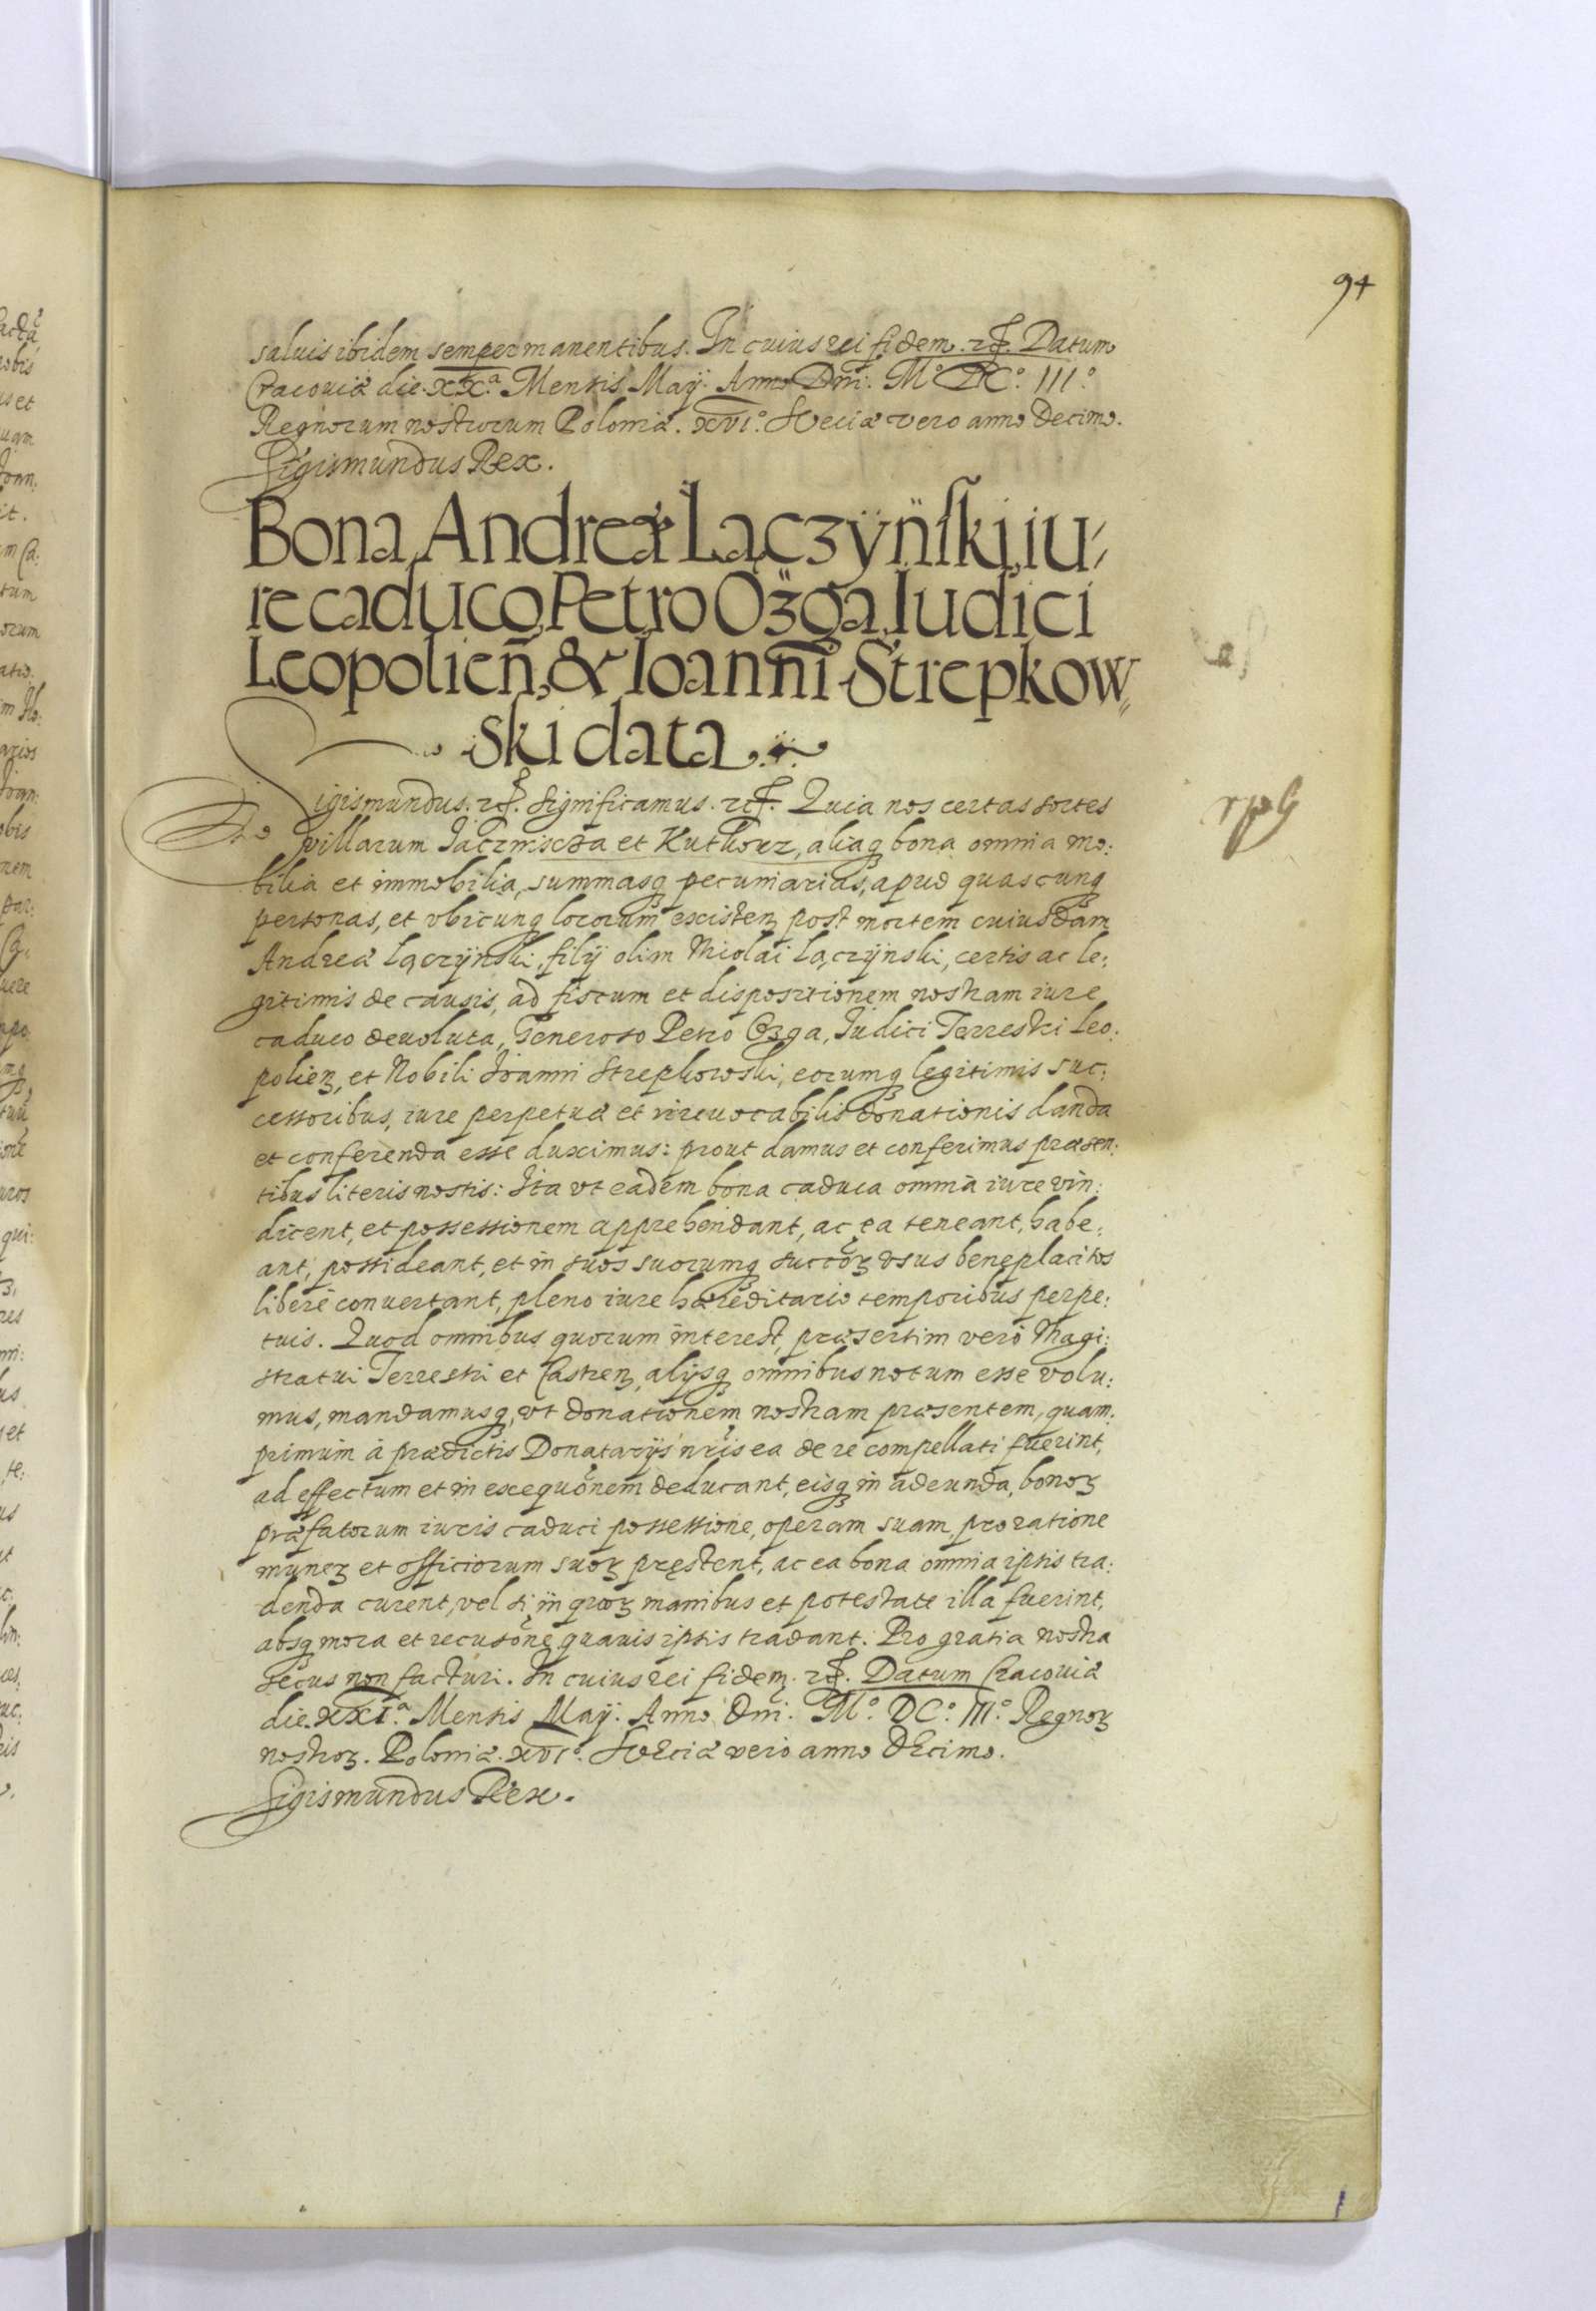 94
saluis ibidem semper manentibus. In cuius rei fidem. rc̃. Datum
Cracouiæ die. XX.ª Mensis Maÿ. Anno Dñi. M.º DC.º III.º
Regnorum nostrorum Poloniæ. XVI.º Sveciæ vero anno Decimo.
Sigismundus Rex.
Bona Andreæ Lączÿńskỉ, iu⸗
re caduco, Petro Ożga, Iudici
Leopolieñ, & Ioanni Strepkow⸗
ski data.
Sigismundus. rc̃. Significamus. rc̃. Quia nos certas sortes
villarum Jaczmiscza et Kutkorz, aliaq₃ bona omnia mo:
bilia et immobilia, summasq₃ pecuniarias, apud quascunq₃
personas, et vbicunq₃ locorum existeñ post mortem cuiusdam
Andreæ Lączÿnski, filÿ olim Nicolai Lączÿnski, certis ac le:
gitimis de causis, ad fiscum et dispositionem nostram iure
caduco deuoluta, Generoso Petro Ozga, Iudici Terrestri Leo:
polieñ, et Nobili Ioanni Strepkowski, eorumq₃ legitimis suc:
cessoribus, iure perpetuæ et irreuocabilis donationis danda
et conferenda esse duximus: prout damus et conferimus præsen:
tibus literis nostris: Ita vt eadem bona caduca omnia iure vin:
dicent, et possessionem apprehendant, ac ea teneant, habe:
ant, possideant, et in suos suorumq₃ succoꝝ vsus beneplacitos
liberè conuertant, pleno iure hæreditario temporibus perpe:
tuis. Quod omnibus quorum interest, præsertim verò Magi:
stratui Terrestri et Castreñ, alÿsq₃ omnibus notum esse volu:
mus, mandamusq₃, vt donationem nostram præsentem, quam:
primum à prædictis Donatarÿs nr̃is ea de re compellati fuerint,
ad effectum et in exequõnem deducant, eisq₃ in adeunda, bonoꝝ
præfatorum iuris caduci possessione, operam suam, pro ratione
muneꝝ et officiorum suoꝝ præstent, ac ea bona omnia ipsis tra:
denda curent, vel si in quoꝝ manibus et potestate illa fuerint,
absq₃ mora et recusõne quauis ipsis tradant. Pro gratia nostra
secus non facturi. In cuius rei fidem. rc̃. Datum Cracouiæ
die. XXI.ª Mensis Maÿ. Anno Dñi. M.º DC.º III.º Regnoꝝ
nostroꝝ. Poloniæ. XVI.º Sveciæ verò anno Decimo.
Sigismundus Rex.